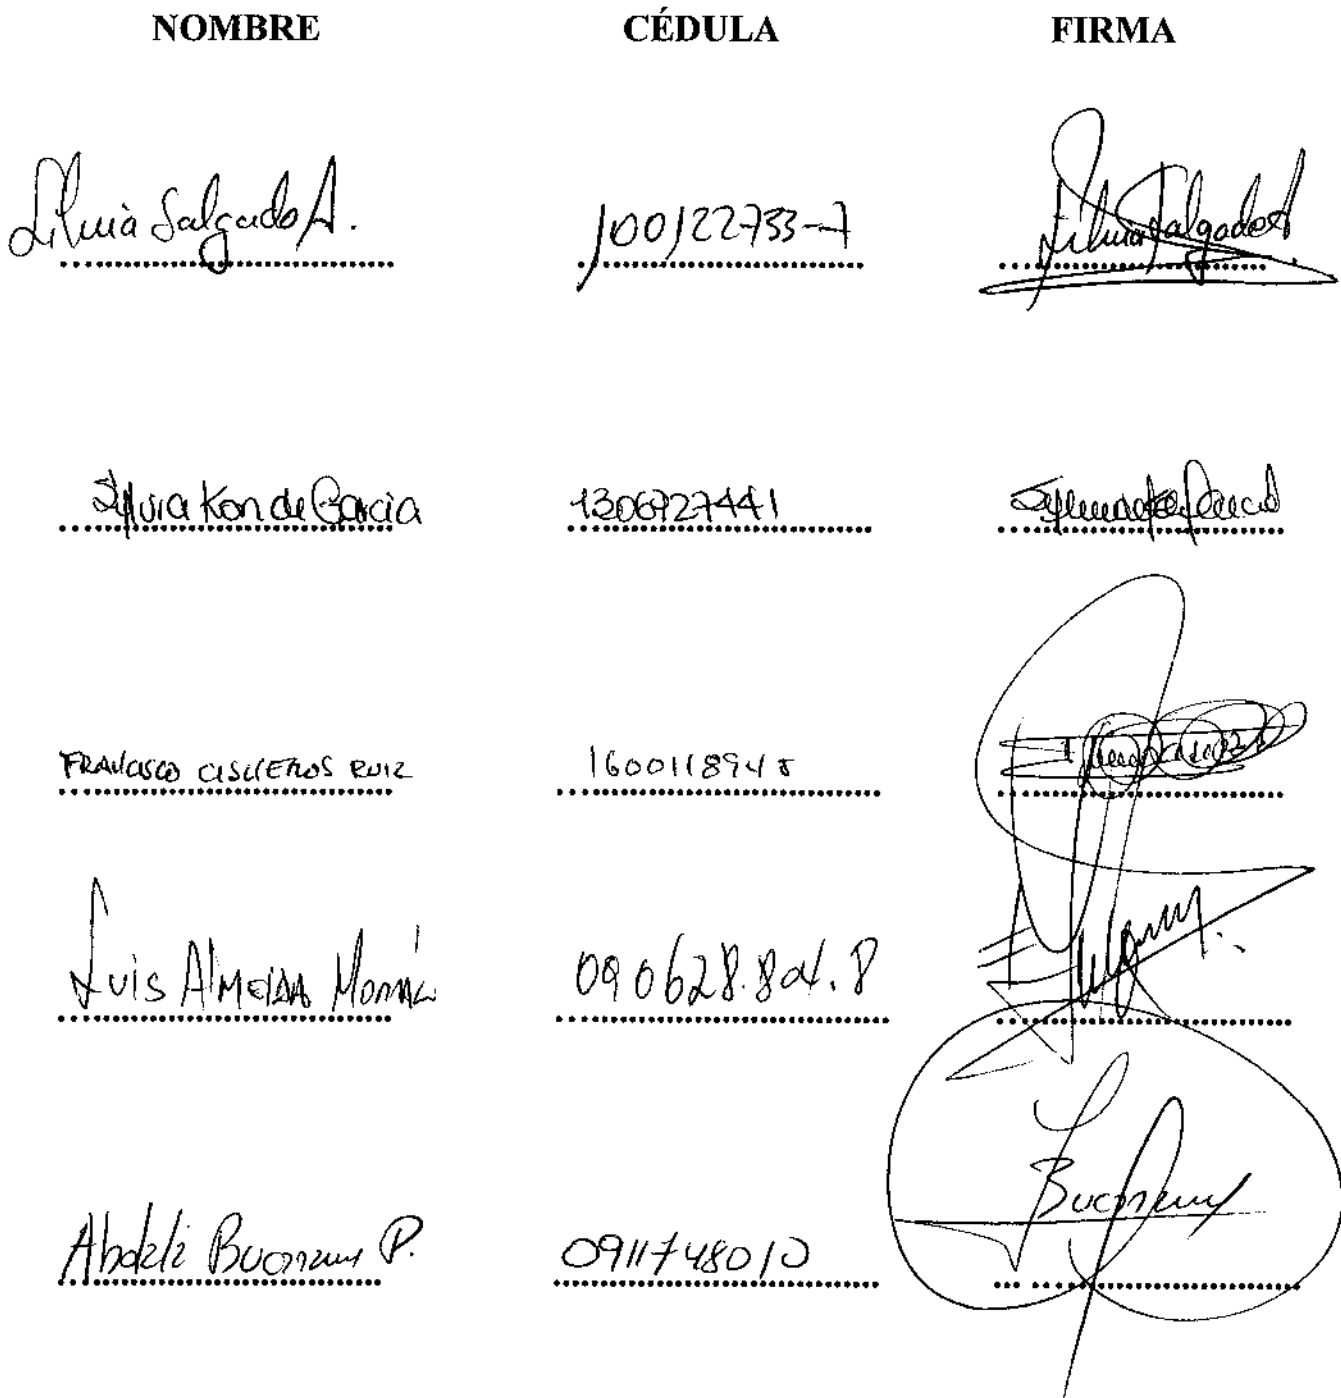 NOMBRE CÉDULA FIRMA
Silvia Salgado A. 100122733-7 Silvia Salgado A
Sylvia Kon de Garcia 1306927441
FRANCISCO CISNEROS RUIZ 160011894
Luis Almeida 090628.804.8
Abdalá Bucaram P. 0911748010 Bucaram